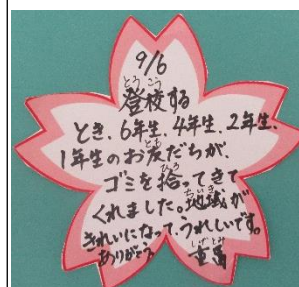 9/6
とうこう
登校する
とき、6年生、4年生、2年生、
とも
1年生のお友だちが、
ひろ
ゴミを拾ってきて
ちいき
くれました。地域が
きれいになって、うれしいです。
しげとみ
ありがとう 重富